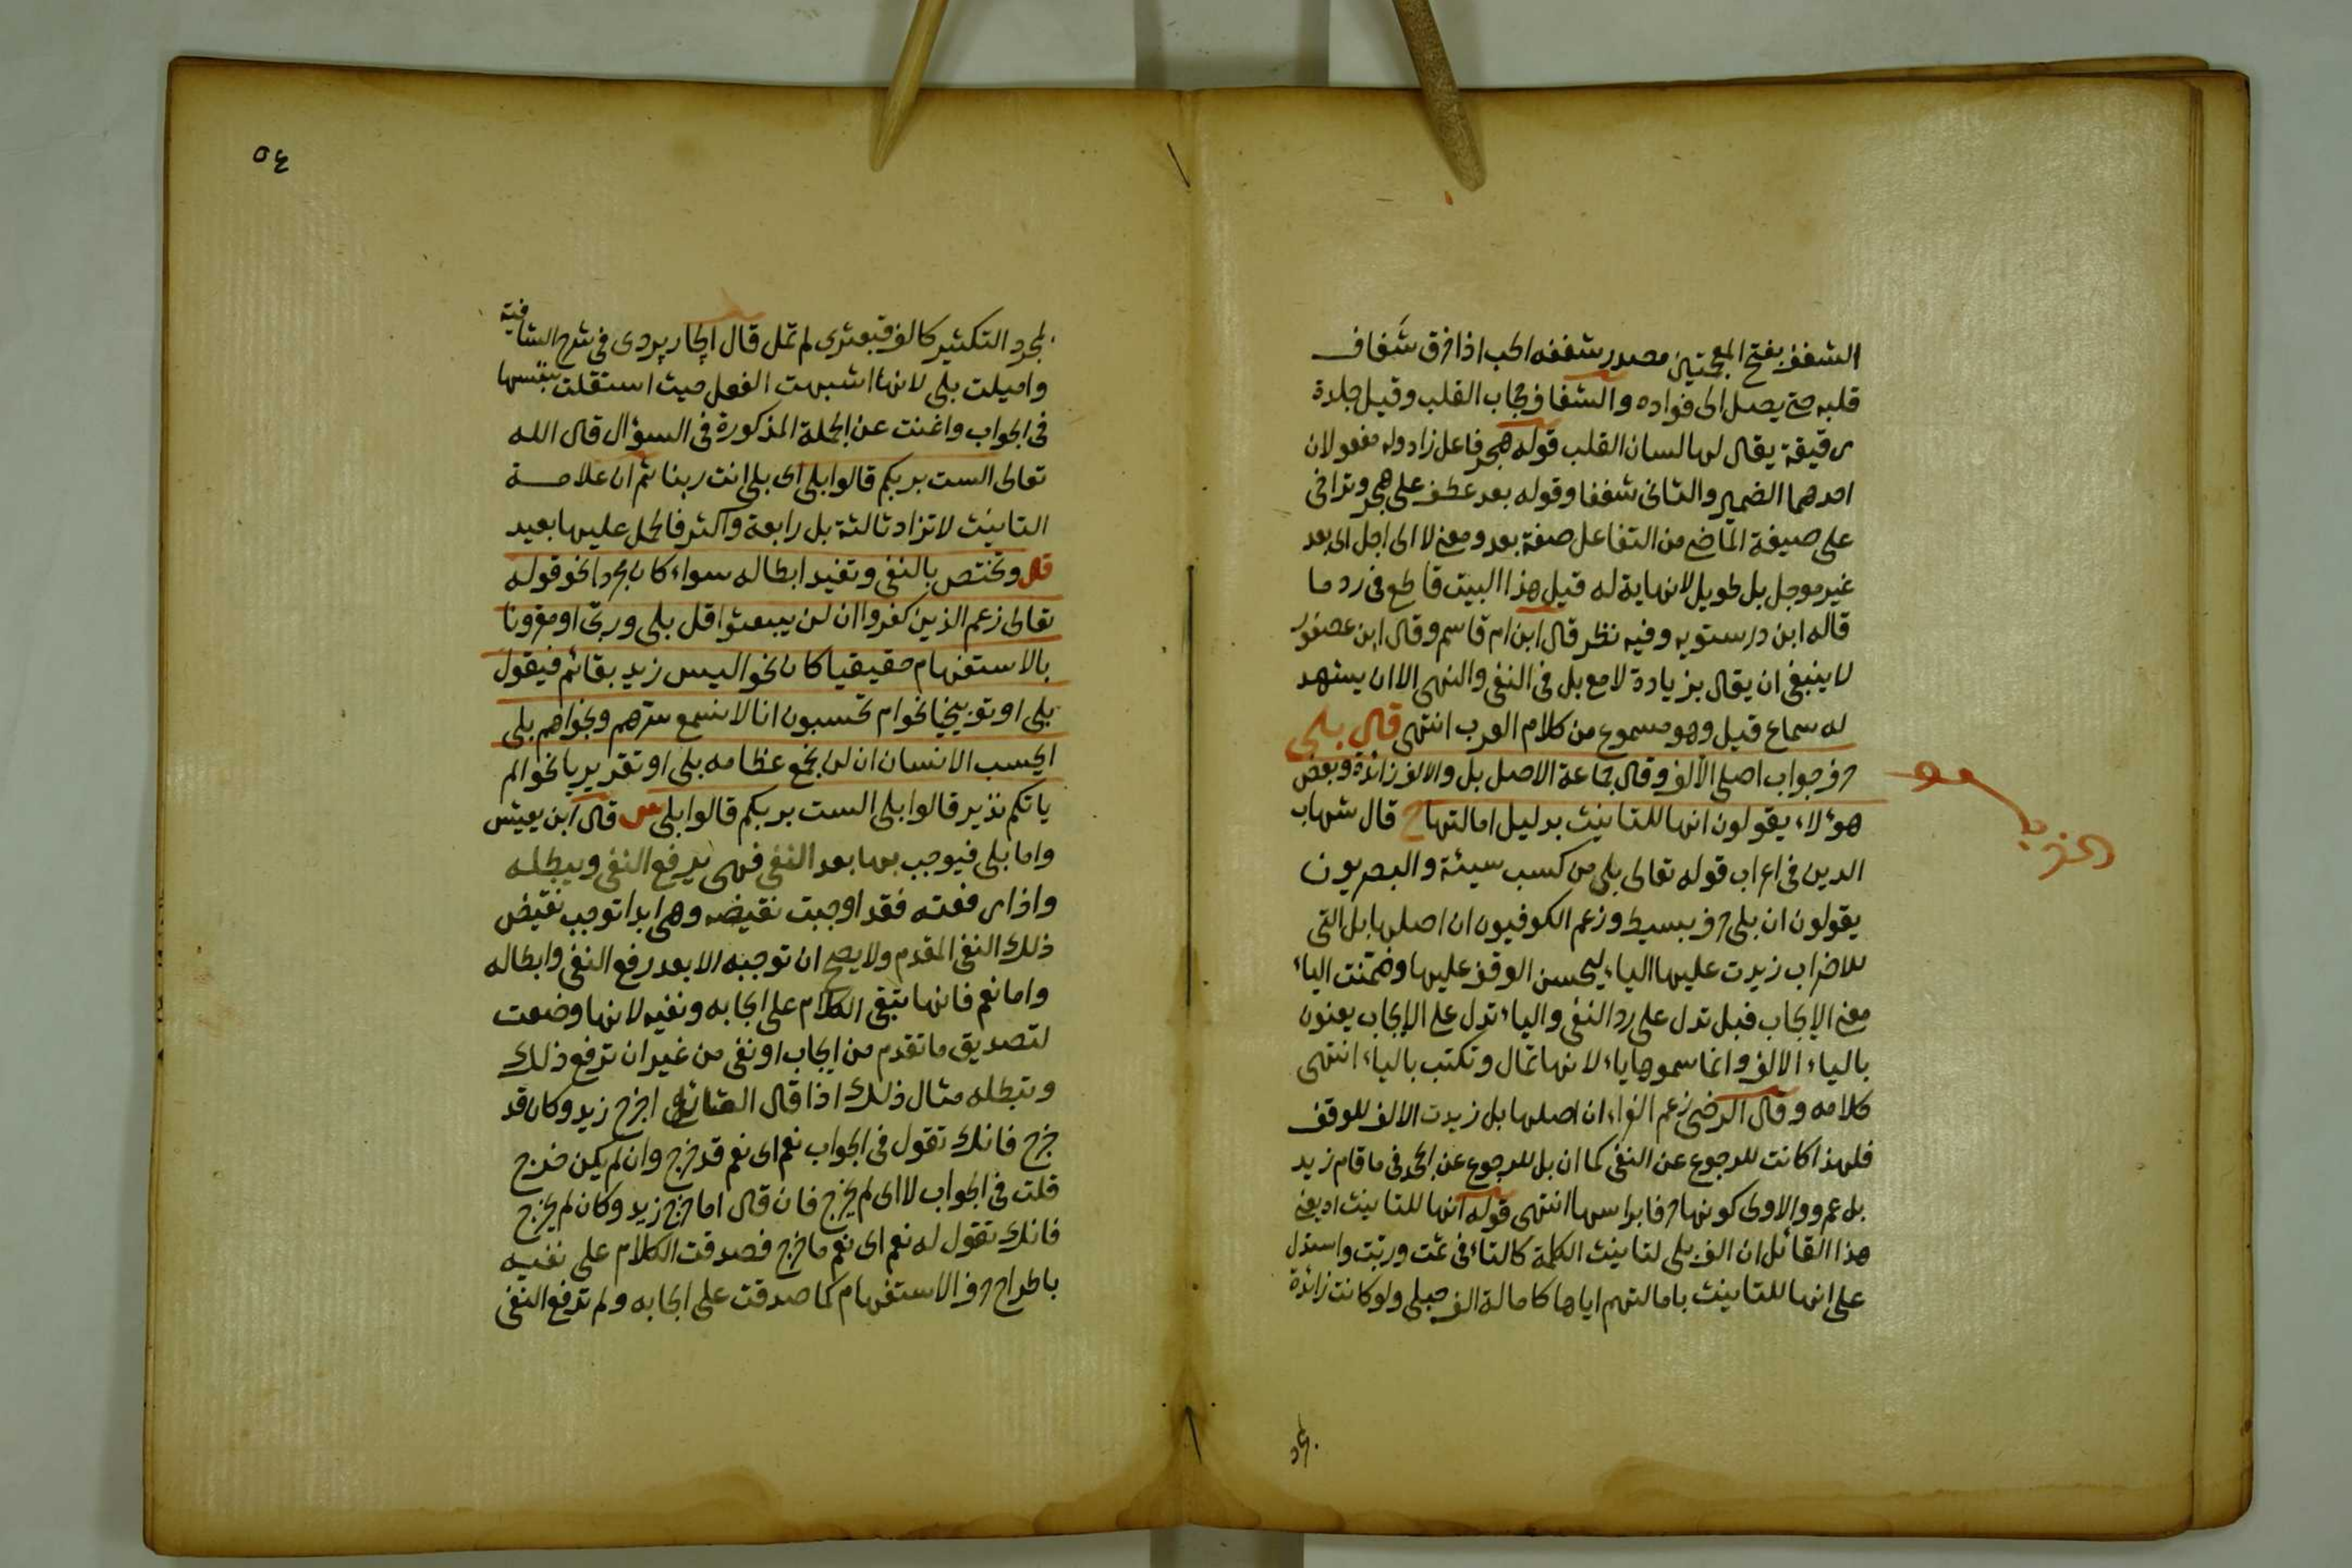 الشغف بفتح المعجمتين مصدر شغفه الحب اذا خرق شغاف
قلبه حتى يصل الى فواده والشغاف حجاب القلب وقيل جلدة
رقيقة يقال لها لسان القلب قوله هجر فاعل زاد وله مفعولان
احدهما الضمير والثانى شغفا وقوله بعد عطف على هجر وتراخى
على صيغة الماضى من التفاعل صفة بعد ومعنى لا الى اجل اى بعد
غير موجل بل طويل لا نهاية له قيل هذا البيت قاطع فى رد ما
قاله ابن درستويه وفيه نظر قال ابن ام قاسم وقال ابن عصفور
لا ينبغى ان يقال بزيادة لا مع بل فى النفى والنهى الا ان يشهد
له سماع قيل وهو مسموع من كلام العرب انتهى قال بلى
حرف جواب اصلى الألف وقال جماعة الاصل بل والالف زائدة وبعض
هؤلاء يقولون انها للتانيث بدليل امالتها ح قال شهاب
الدين فى اعراب قوله تعالى بلى من كسب سيئة والبصريون
يقولون ان بلى حرف بسيط وزعم الكوفيون ان اصلها بل التى
للاضراب زيدت عليها الياء ليحسن الوقف عليها وضمنت الياء
معنى الإيجاب فبل تدل على رد النفى والياء تدل على الإيجاب يعنون
بالياء الالف وانما سموها ياء لانها تمال وتكتب بالياء انتهى
كلامه وقال الرضى زعم الفراء ان اصلها بل زيدت الالف للوقف
فلهذا كانت للرجوع عن النفى كما ان بل للرجوع عن الجحد فى ما قام زيد
بل عمرو والاولى كونها حرفا براسها انتهى قوله انها للتانيث اه يعنى
هذا القائل ان الف بلى لتانيث الكلمة كالتاء فى ثمت وربت واستدل
على انها للتانيث بامالتهم اياها كامالة الف حبلى ولو كانت زائدة
٥٤
لمجرد التكثير كالف قبعثرى لم تمل قال الجاربردى فى شرح الشافية
واميلت بلى لانها اشبهت الفعل حيث استقلت بنفسها
فى الجواب واغنت عن الجملة المذكورة فى السؤال قال الله
تعالى الست بربكم قالوا بلى اى بلى انت ربنا ثم ان علامة
التانيث لا تزاد ثالثة بل رابعة واكثر فالحمل عليها بعيد
قال وتختص بالنفى وتفيد ابطاله سواء كان مجردا نحو قوله
تعالى زعم الذين كفروا ان لن يبعثوا قل بلى وربى او مقرونا
بالاستفهام حقيقيا كان نحو اليس زيد بقائم فيقول
بلى او توبيخيا نحو ام تحسبون انا لا نسمع سرهم ونجواهم بلى
ايحسب الانسان ان لن نجمع عظامه بلى او تقديريا نحو الم
ياتكم نذير قالوا بلى الست بربكم قالوا بلى ش قال ابن يعيش
واما بلى فيوجب بها بعد النفى فهى يرفع النفى ويبطله
واذا رفعته فقد اوجبت نقيضه وهى ابدا توجب نقيض
ذلك النفى المقدم ولا يصح ان توجبه الا بعد رفع النفى وابطاله
واما نعم فانها تبقى الكلام على ايجابه ونفيه لانها وضعت
لتصديق ما تقدم من ايجاب او نفى من غير ان ترفع ذلك
وتبطله مثال ذلك اذا قال القائل اخرج زيد وكان قد
خرج فانك تقول فى الجواب نعم اى نعم قد خرج وان لم يكن خرج
قلت فى الجواب لا اى لم يخرج فان قال اما خرج زيد وكان لم يخرج
فانك تقول له نعم اى نعم ما خرج فصدقت الكلام على نفيه
باطراح حرف الاستفهام كما صدقت على ايجابه ولم ترفع النفى